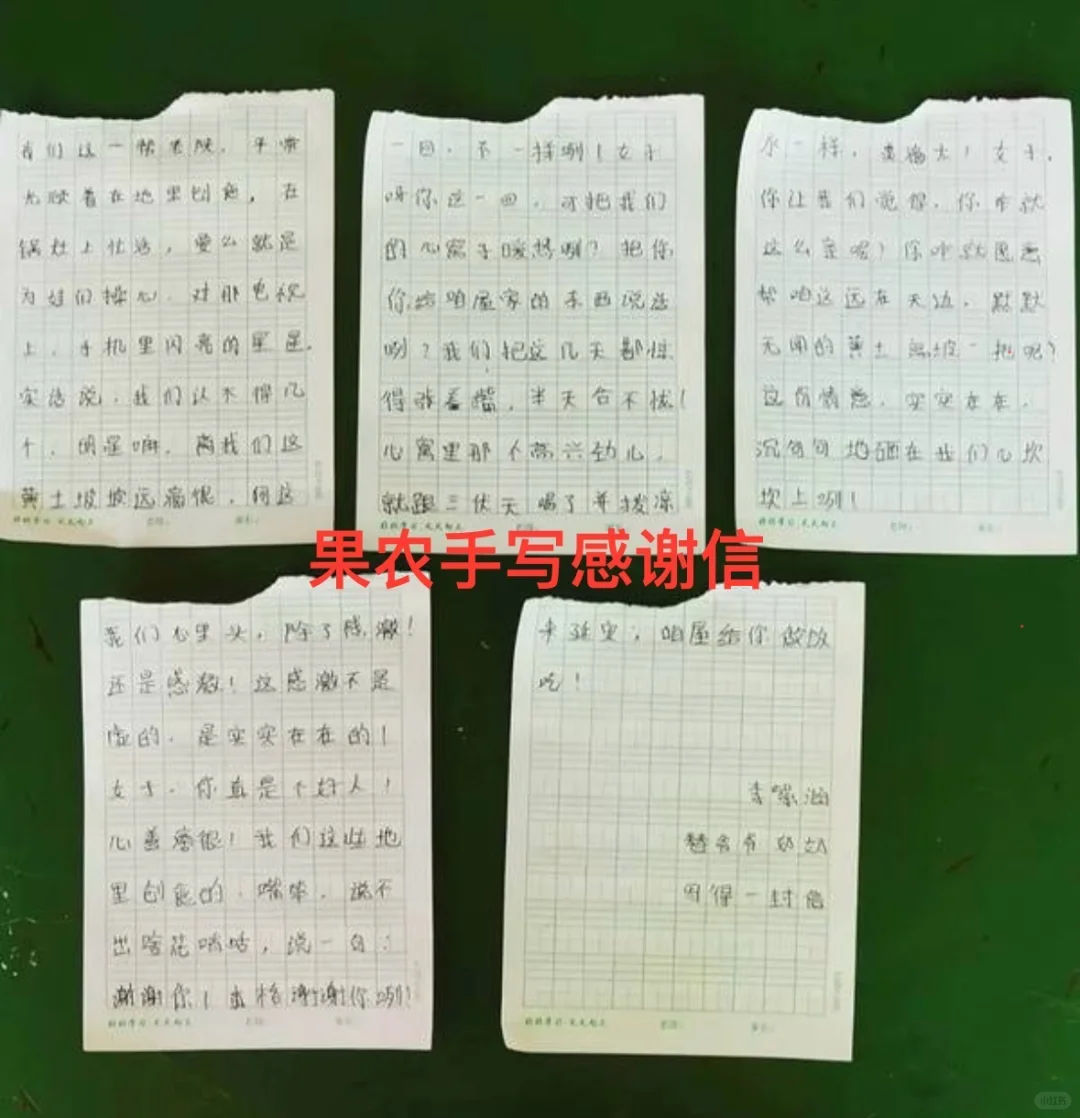 我们这一帮老陕，平常
光顾着在地里刨食，在
锅灶上忙活，要么就是
为娃们操心．对那电视
上．手机里闪亮的星星．
实话说．我们认不得几
个．明星嘛．离我们这
黄土坡坡远着很．但这
一回．不一样咧！女子
呀你这一回．可把我们
的心窝子暖热咧？把你
你给咱屋家的东西说选
咧？我们把这几天都惊
得张着嘴．半天合不拢！
心窝里那个高兴劲儿．
就跟三伏天喝了井拨凉
水一样．美滴太！女子．
你让我们觉得．你咋就
这么亲呢？你咋就愿意
帮咱这远在天边．默默
无闻的黄土 坡一把呢？
这份情意．实实在在．
沉甸甸地砸在我们心坎
坎上咧！
果农手写感谢信
我们心里头，除了感激！
还是感激！这感激不是
虚的．是实实在在的！
女子．你真是个好人！
心善着很！我们这些地
里刨食的．嘴笨．说不
出啥花 ，说一句：
谢谢你！ 谢谢你咧！
来延安；咱屋给你做饭
吃！
李
替 奶奶
写得一封信
好好学习·天天向上
好好学习·天天向上
好好学习·天天向上
好好学习·天天向上
好好学习·天天向上
小红书